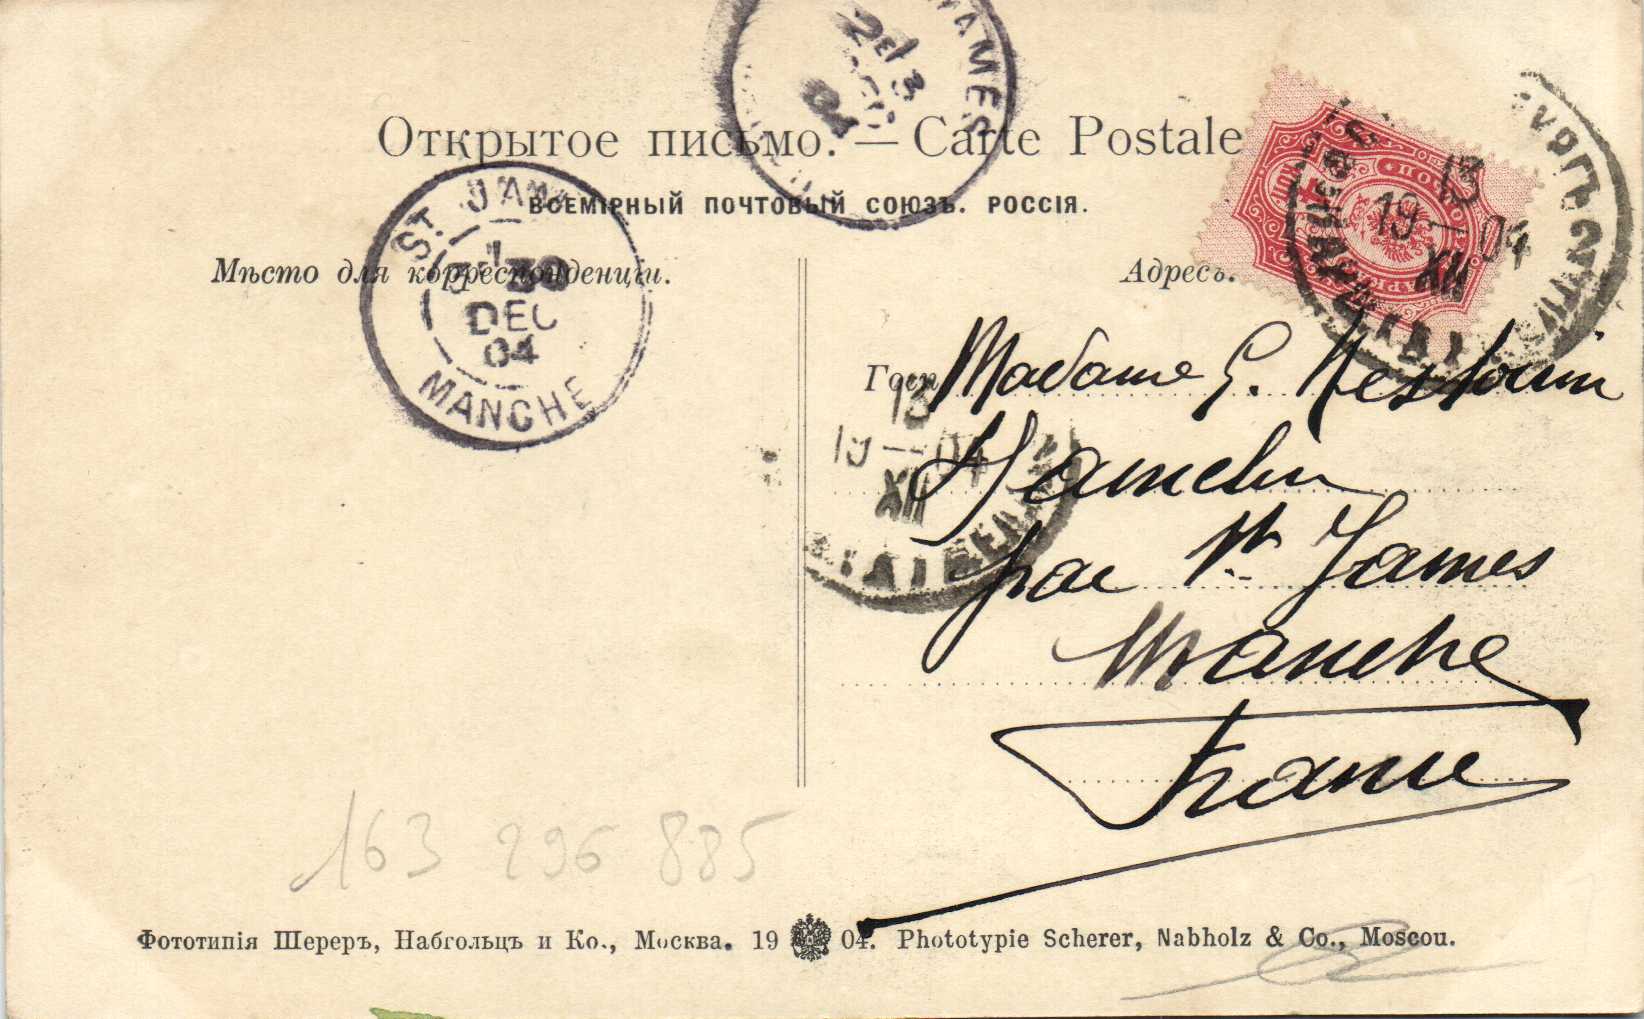 Открытое письмо. — Carte Postale
ВСЕМІРНЫЙ ПОЧТОВЫЙ СОЮЗЪ. РОССІЯ.
Мѣсто для корреспонденціи.
Адресъ.
ST. JAM
30
DEC
04
MANCHE
JAMES
04
13
19 — 04
XII
13
19 — 04
XII
Madame G.
Hamelin
par St James
Manche
France
163 296 885
Фототипія Шереръ, Набгольцъ и Ко., Москва. 19 04. Phototypie Scherer, Nabholz & Co., Moscou.